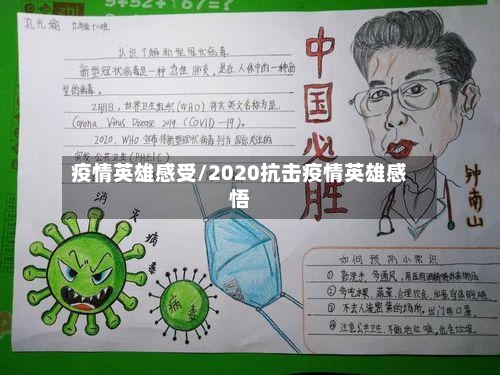 孔光瑞
认识了解新型冠状病毒
新型冠状病毒是一种急性肺炎，是在人体中的一种新
型的病毒。
2月11日，世界卫生组织（WHO）将其英文名称为是
Corona Virus Disease 2019（COVID—19）。
2020，WHO宣布将新型冠状病毒列为国际关注的
突发公共卫生（PHEIC）
中国必胜
钟南山
疫情英雄感受/2020抗击疫情英雄感
悟
消灭病毒
病毒
如何预防小常识
① 勤洗手，多通风，
② 多吃水果、蔬菜，合理饮食，
③ 不去人流密集的场所，出门戴口罩。
④ 注意公共卫生，不随地吐痰，